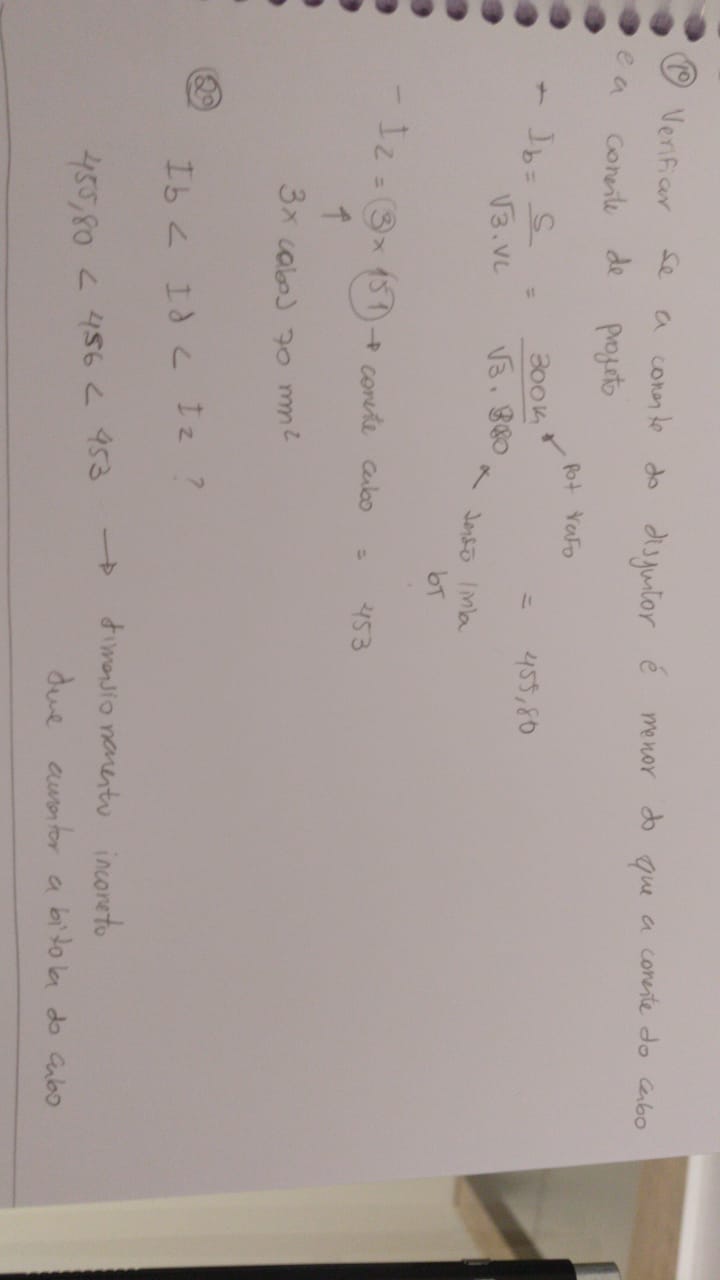 1º Verificar se a corrente do disjuntor é menor do que a corrente do cabo
e a corrente de projeto
- Ib = S / √3 . VL = 300k / √3 . 380 = 455,80
Pot trafo
tensão linha
bT
- Iz = 3 x 151 → corrente cabo = 453
3x cabos 70 mm²
2º Ib < Id < Iz ?
455,80 < 456 < 453 → dimensionamento incorreto
deve aumentar a bitola do cabo